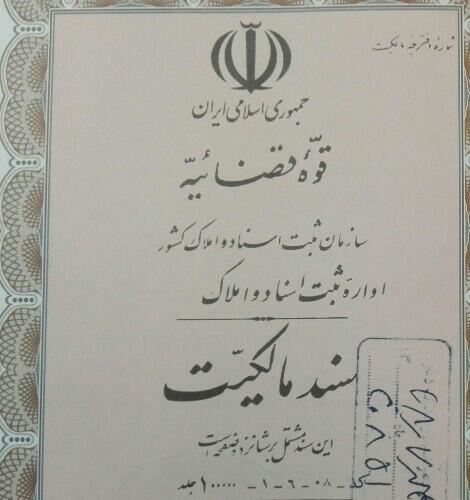 شمارهٔ دفترچه مالکیت
جمهوری اسلامی ایران
قوّهٔ قضائیّه
سازمان ثبت اسناد و املاک کشور
ادارهٔ ثبت اسناد و املاک
سند مالکیّت
این سند مشتمل بر شانزده صفحه است
۰۸-۶-۱-۱۰۰۰۰۰ جلد